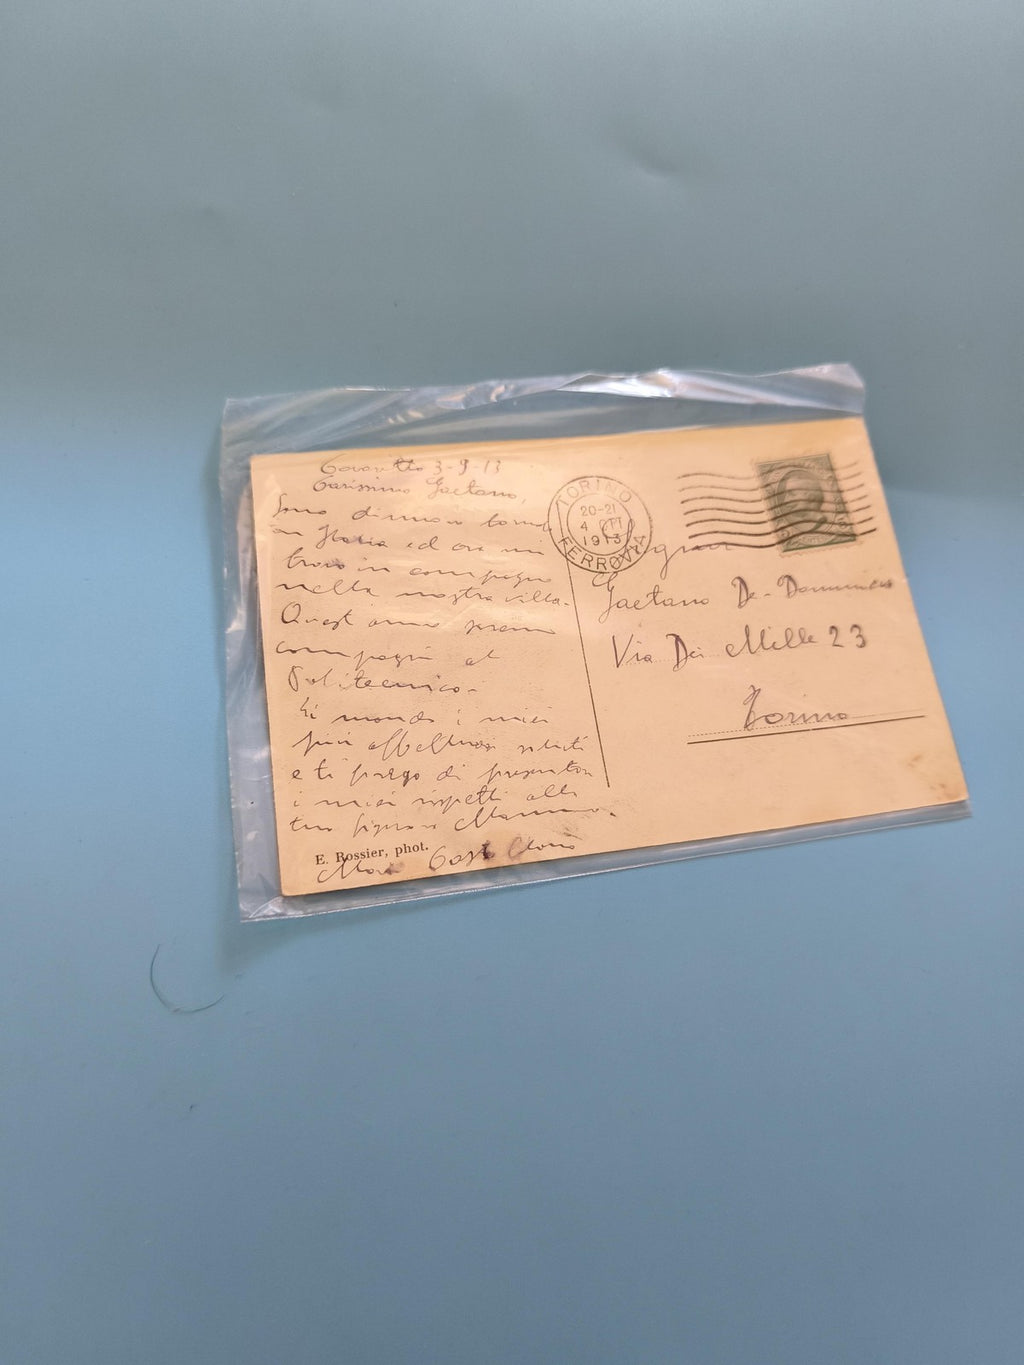 3-9-13
Carissimo Gaetano,
Sono di nuovo
in Italia ed ora mi
trovo in campagna
nella nostra villa.
Quest'anno saremo
compagni al
Politecnico.
Ti mando i miei
più affettuosi saluti
e ti prego di presentare
i miei rispetti alla
tua Signora Mamma.
E. Rossier, phot.
TORINO
20-21
4 OTT
1913
FERROVIA
Signor
Gaetano De-Dominicis
Via Dei Mille 23
Torino